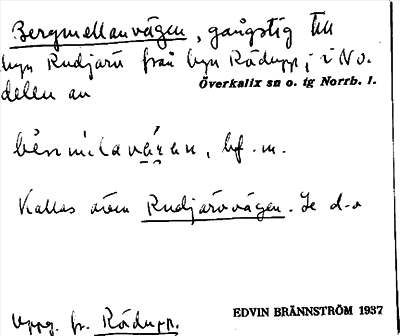 Bergmellanvägen, gångstig till
byn Rudjärv från byn Rödupp, i No.
delen av
Överkalix sn o. tg Norrb. l.
bf. m.
Kallas även Rudjärvvägen. Se d-o
Uppg. fr. Rödupp.
EDVIN BRÄNNSTRÖM 1937